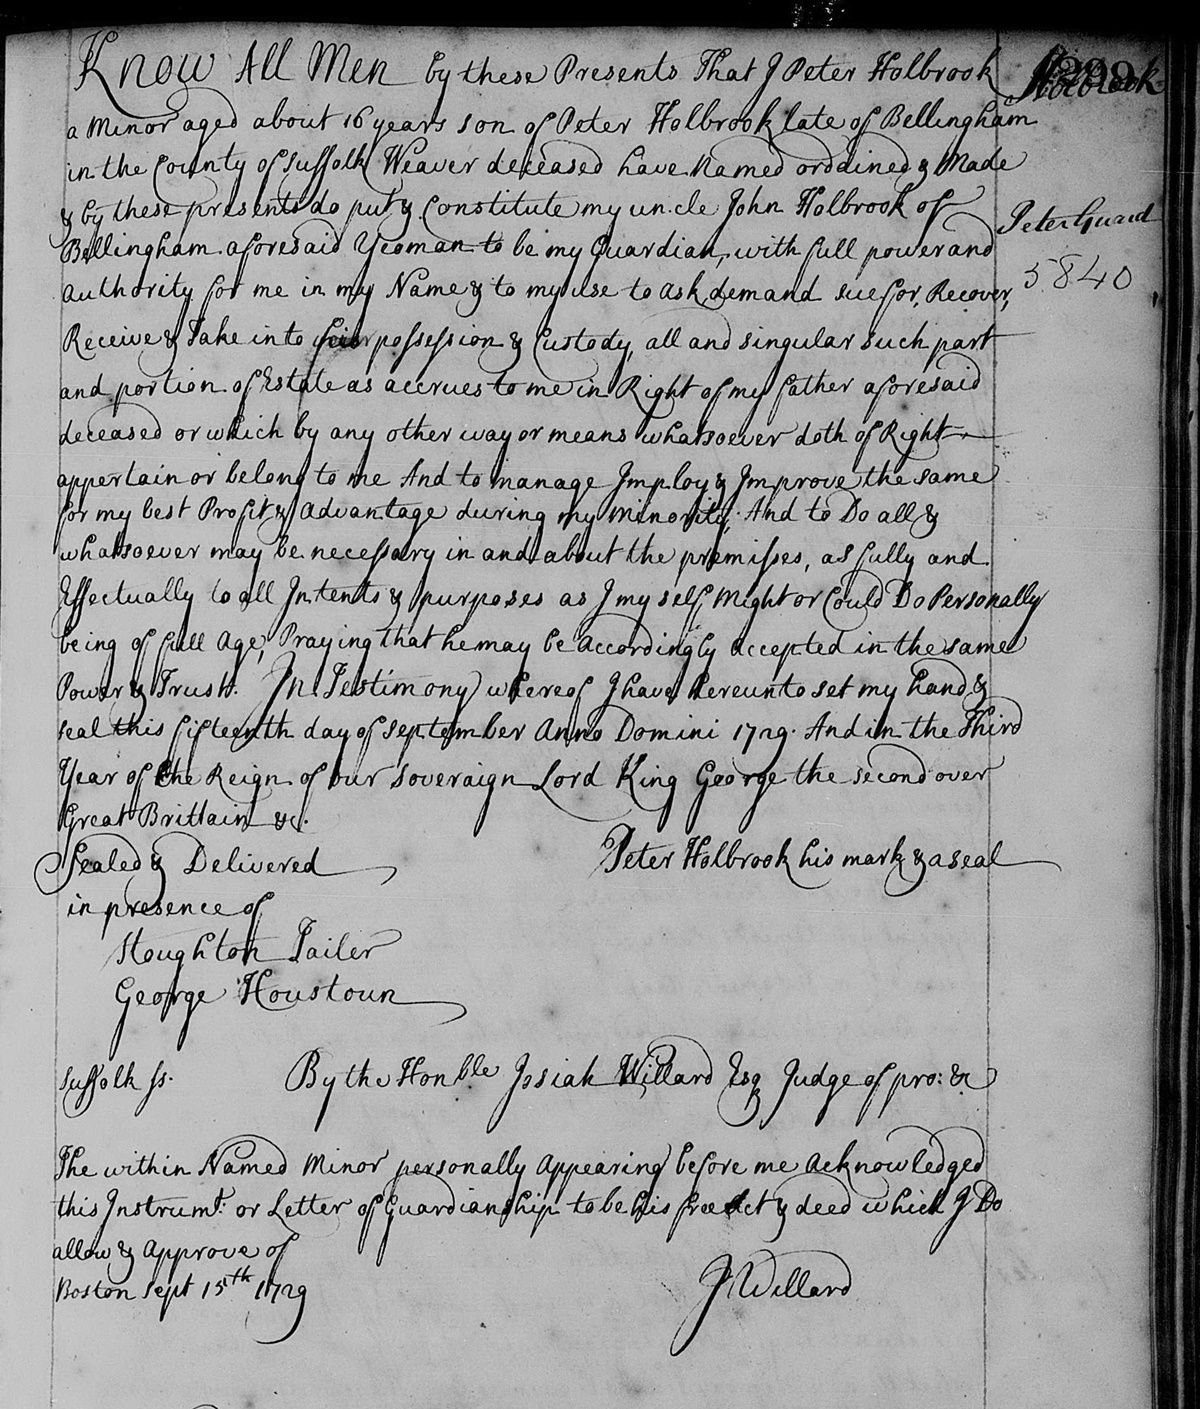 Know All Men by these Presents That I Peter Holbrook
Holbrook
a Minor aged about 16 years son of Peter Holbrook late of Bellingham
in the County of Suffolk Weaver deceased have Named ordained & Made
& by these presents do put & Constitute my uncle John Holbrook of
Peter Guard
Bellingham aforesaid Yeoman to be my Guardian, with full power and
5840
Authority for me in my Name & to my use to Ask, demand sue for, Recover,
Receive & Take into possession & Custody, all and singular such part
and portion of Estate as accrues to me in Right of my father aforesaid
deceased or which by any other way or means whatsoever doth of Right
appertain or belong to me And to manage Imploy & Improve the same
for my best Profit & Advantage during my Minority; And to Do all &
whatsoever may be necessary in and about the premisses, as fully and
Effectually to all Intents & purposes as I my self Might or Could Do Personally
being of full Age, Praying that he may be Accordingly Accepted in the same
Power & Trust. In Testimony whereof I have hereunto set my hand &
seal this fifteenth day of September Anno Domini 1729. And in the Third
Year of the Reign of our Soveraign Lord King George the second over
Great Brittain &c.
Sealed & Delivered
Peter Holbrook his mark & a seal
in presence of
Stoughton Tailer
George Houstoun
Suffolk ss.
By the Honble Josiah Willard Esq Judge of pro: &c
The within Named Minor personally Appearing before me Acknowledged
this Instrumt. or Letter of Guardianship to be his free Act & deed which I Do
allow & Approve of
Boston Sept 15th 1729
J Willard